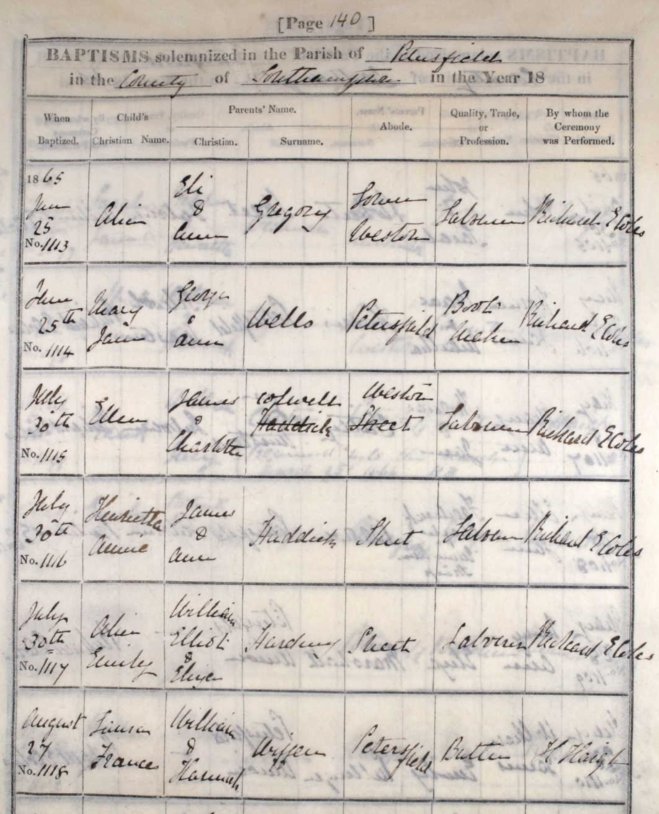 [Page 140]
BAPTISMS solemnized in the Parish of Petersfield
in the County of Southampton in the Year 18
When Baptized. Child's Christian Name. Parents' Name. Christian. Surname. Abode. Quality, Trade, or Profession. By whom the Ceremony was Performed.
1865
June 25 No. 1113 Alice Eli & Ann Gregory Lower Weston Labourer Richard E Coles
June 25th No. 1114 Mary Jane George & Ann Wells Petersfield Boot Maker Richard E Coles
July 30th No. 1115 Ellen James & Charlotte Colwell Haddick Weston Sheet Labourer Richard E Coles
July 30th No. 1116 Henrietta Annie James & Ann Haddick Sheet Labourer Richard E Coles
July 30th No. 1117 Alice Emily William Elliot & Eliza Harding Sheet Labourer Richard E Coles
August 27 No. 1118 Frances William & Hannah Petersfield H Haigh